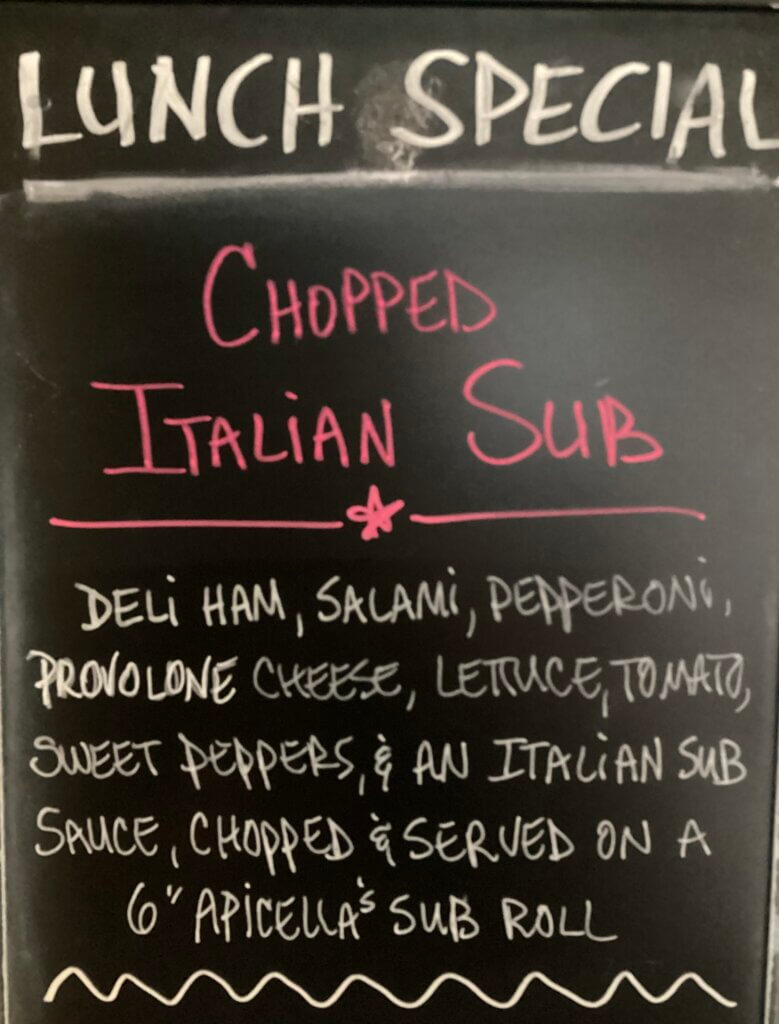 LUNCH SPECIAL
CHOPPED
ITALIAN SUB
DELI HAM, SALAMI, PEPPERONI,
PROVOLONE CHEESE, LETTUCE, TOMATO,
SWEET PEPPERS, & AN ITALIAN SUB
SAUCE, CHOPPED & SERVED ON A
6" APICELLA'S SUB ROLL